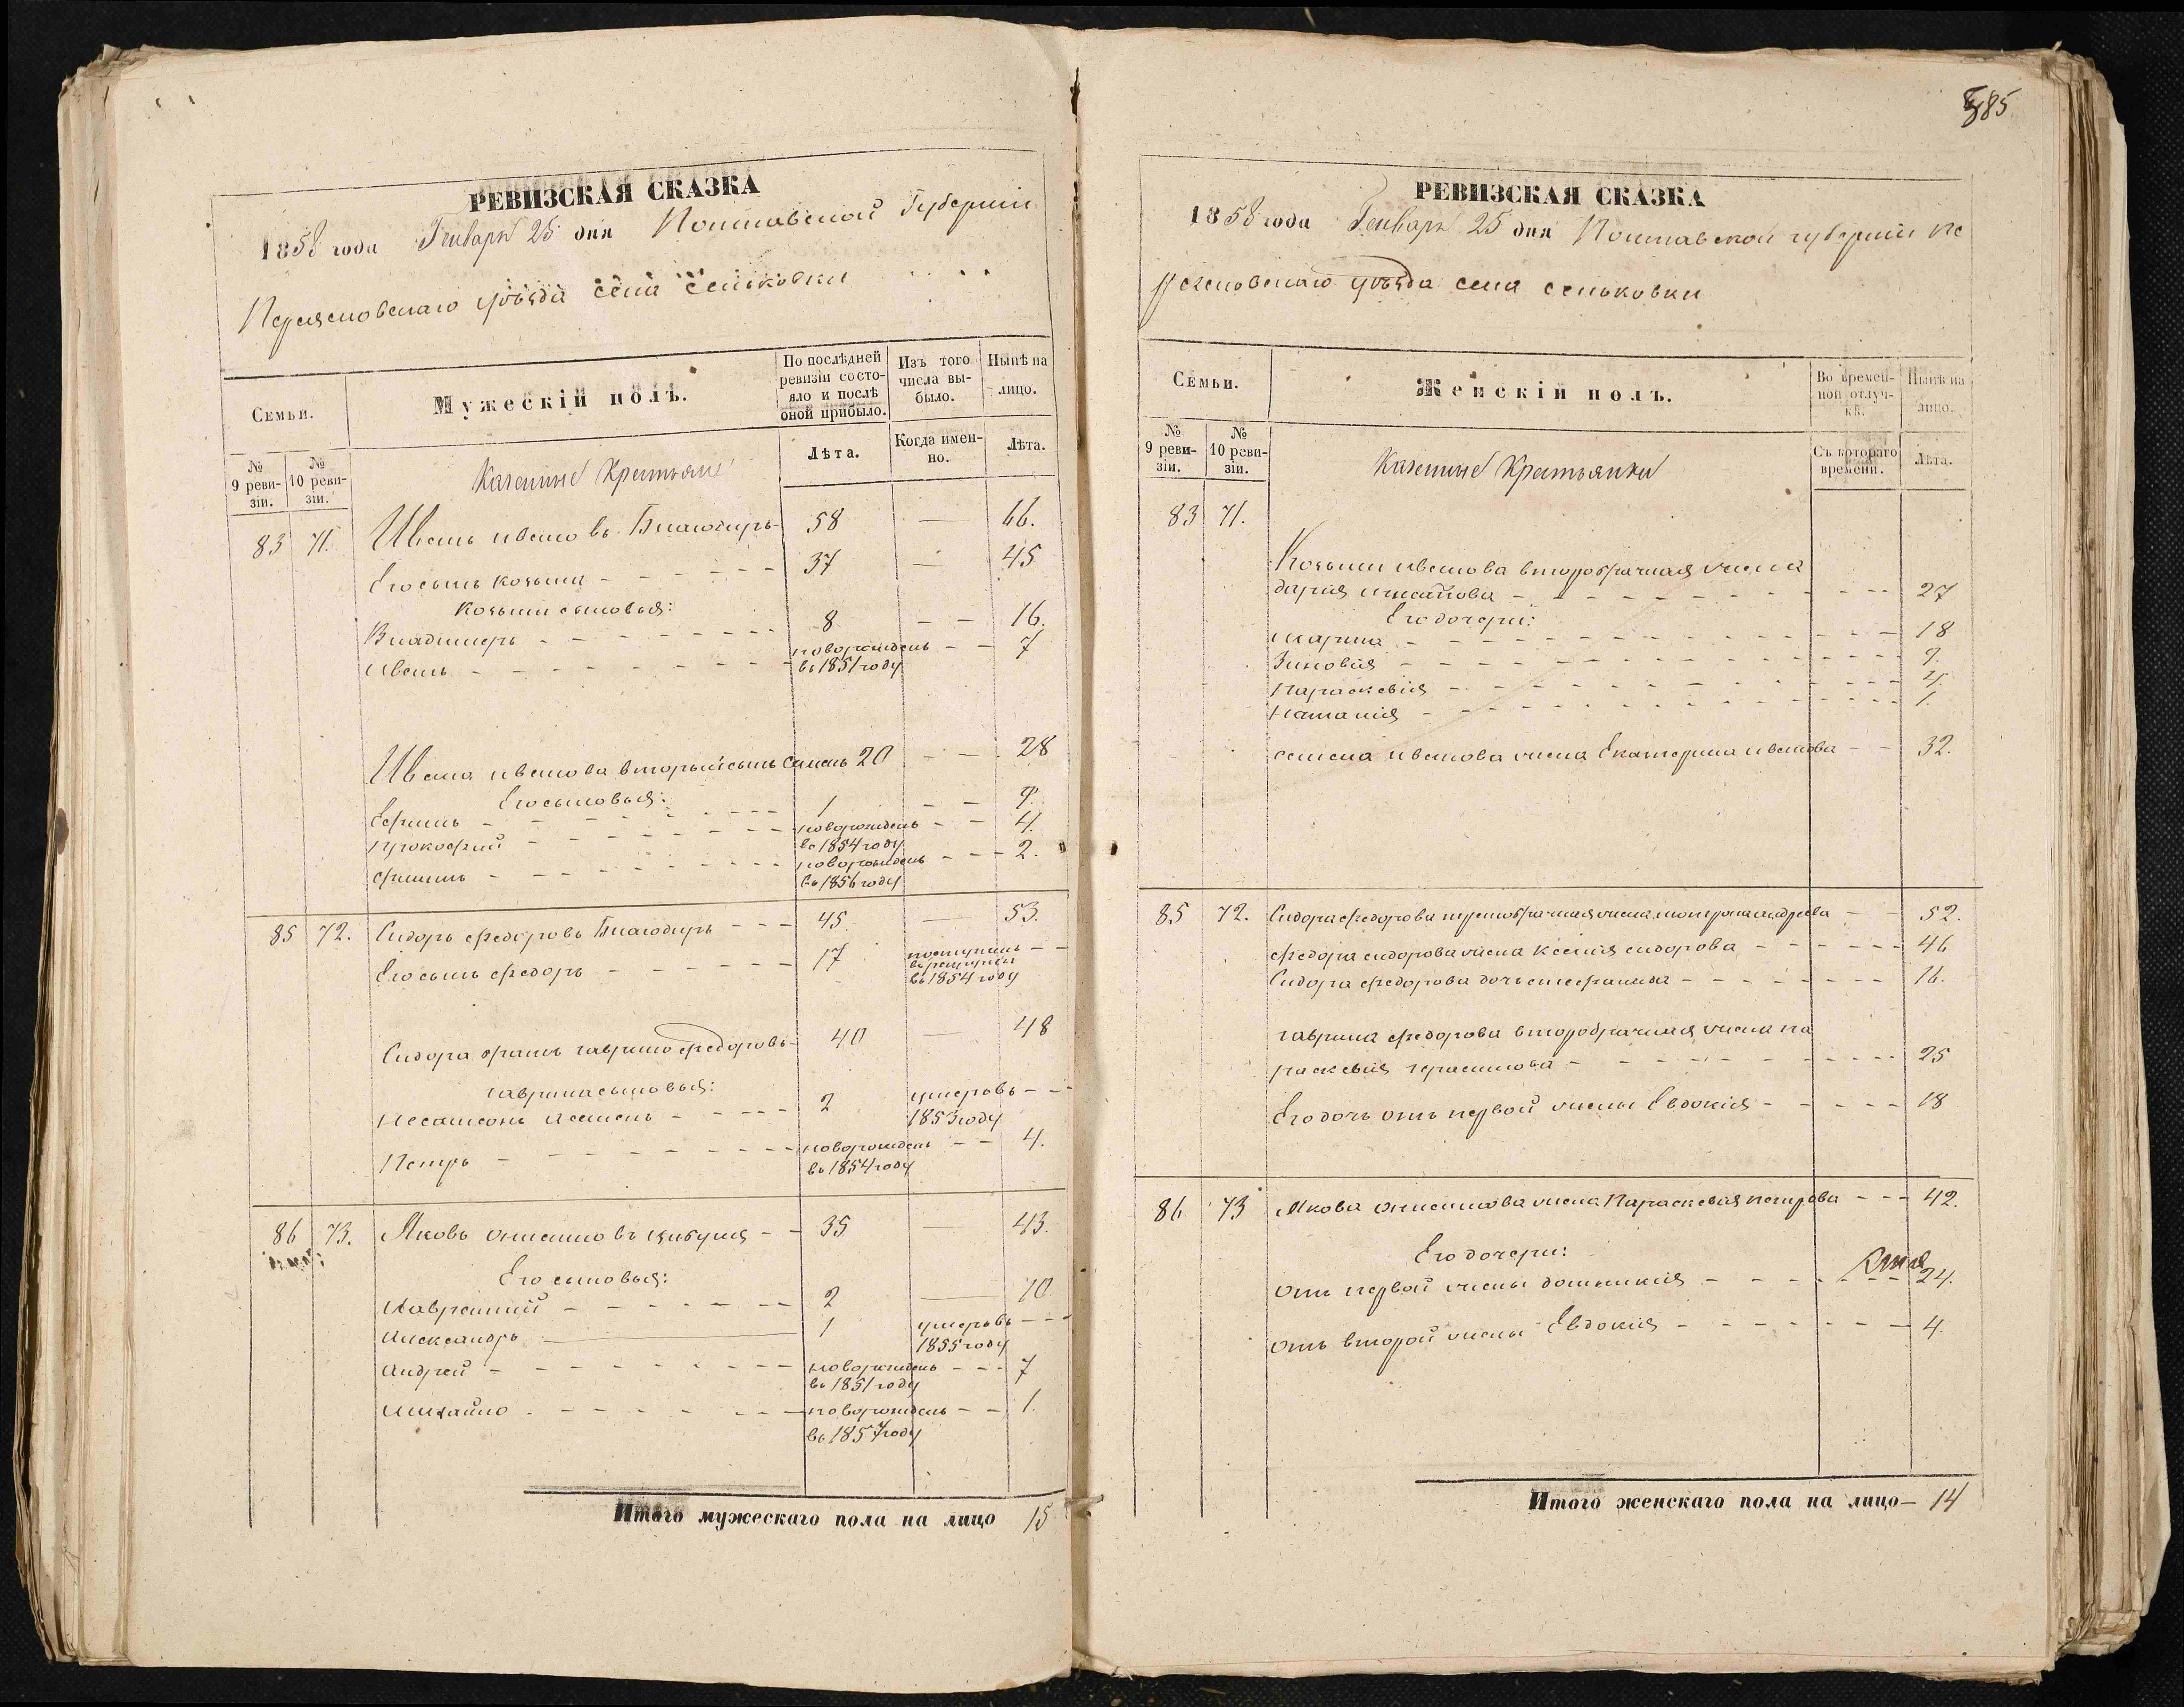 РЕВИЗСКАЯ СКАЗКА
1858 года Генваря 25 дня Полтавской Губернии
Переясловскаго уѣзда села Сеньковки
Семьи.
Мужескій полъ.
По послѣдней ревизіи состояло и послѣ оной прибыло.
Изъ того числа выбыло.
Нынѣ на лицо.
№ 9 ревизіи.
№ 10 ревизіи.
Казенные Крестьяне
Лѣта.
Когда именно.
Лѣта.
83 71. Иванъ ивановъ Благодиръ 58 — 66.
Его сынъ козьма 37 — 45
Козьми сыновья:
Владимеръ 8 — 16.
Иванъ новорожденъ въ 1851 году — 7
Ивана иванова вторый сынъ Семенъ 20 — 28
Его сыновья:
Ефимъ 1 — 9.
прокофий новорожденъ въ 1854 году — 4.
филипъ новорожденъ въ 1856 году — 2.
85 72. Сидоръ федоровъ Благодиръ 45. — 53.
Его сынъ федоръ 17 поступилъ въ рекруты въ 1854 году
Сидора братъ гаврило федоровъ 40 — 48
гаврила сыновья:
семенъ 2 умеръ въ 1853 году
Петръ новорожденъ въ 1854 году — 4.
86 73. Яковъ онисимовъ цибуля 35 — 43.
Его сыновья:
Лаврентий 2 — 10.
Александръ 1 умеръ въ 1855 году
Андрей новорожденъ въ 1851 году — 7
михайло новорожденъ въ 1857 году — 1.
Итого мужескаго пола на лицо 15
385
РЕВИЗСКАЯ СКАЗКА
1858 года Генваря 25 дня Полтавской губернии пе
реясловскаго уѣзда села сеньковки
Семьи.
Женскій полъ.
Во временной отлучкѣ.
Нынѣ на лицо.
№ 9 ревизіи.
№ 10 ревизіи.
Казенные Крестьянки
Съ котораго времени.
Лѣта.
83 71.
Козьми иванова второбрачная жена
дария 27
Его дочери:
марина 18
Зиновия 9.
параскевия 4.
наталия 1.
семена иванова жена Екатерина иванова 32.
85 72. Сидора федорова третобрачная жена мотрона андреева 52.
федора сидорова жена ксения сидорова 46
Сидора федорова дочь стефанида 16.
гаврила федорова второбрачная жена па
раскевия герасимова 25
Его дочь отъ первой жены Евдокия 18
86 73 Якова онисимова жена Параскевия петрова 42.
Его дочери:
отъ первой жены домникия 24.
отъ второй жены Евдокия 4.
Итого женскаго пола на лицо — 14